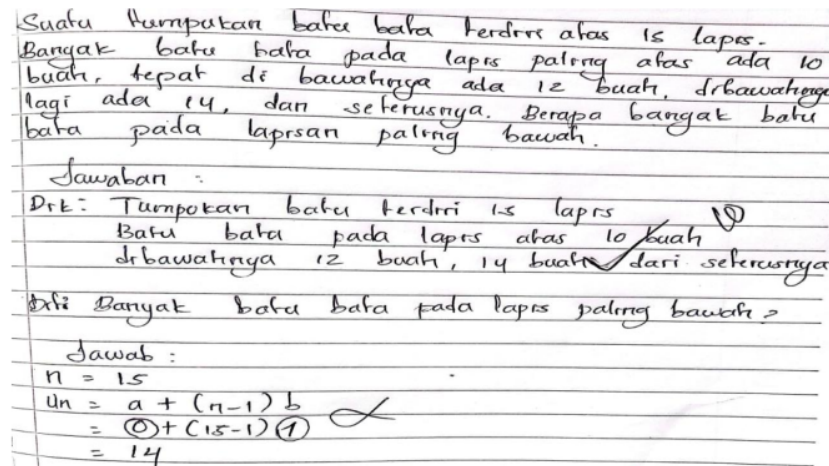 Suatu tumpukan batu bata terdiri atas 15 lapis.
Banyak batu bata pada lapis paling atas ada 10
buah, tepat di bawahnya ada 12 buah, dibawahnya
lagi ada 14, dan seterusnya. Berapa banyak batu
bata pada lapisan paling bawah.
Jawaban :
Dik : Tumpokan batu terdiri 15 lapis
Batu bata pada lapis atas 10 buah
dibawahnya 12 buah, 14 buah dari seterusnya
Dit: Banyak batu bata pada lapis paling bawah ?
Jawab :
n = 15
Un = a + (n-1) b
= 0 + (15-1) 1
= 14